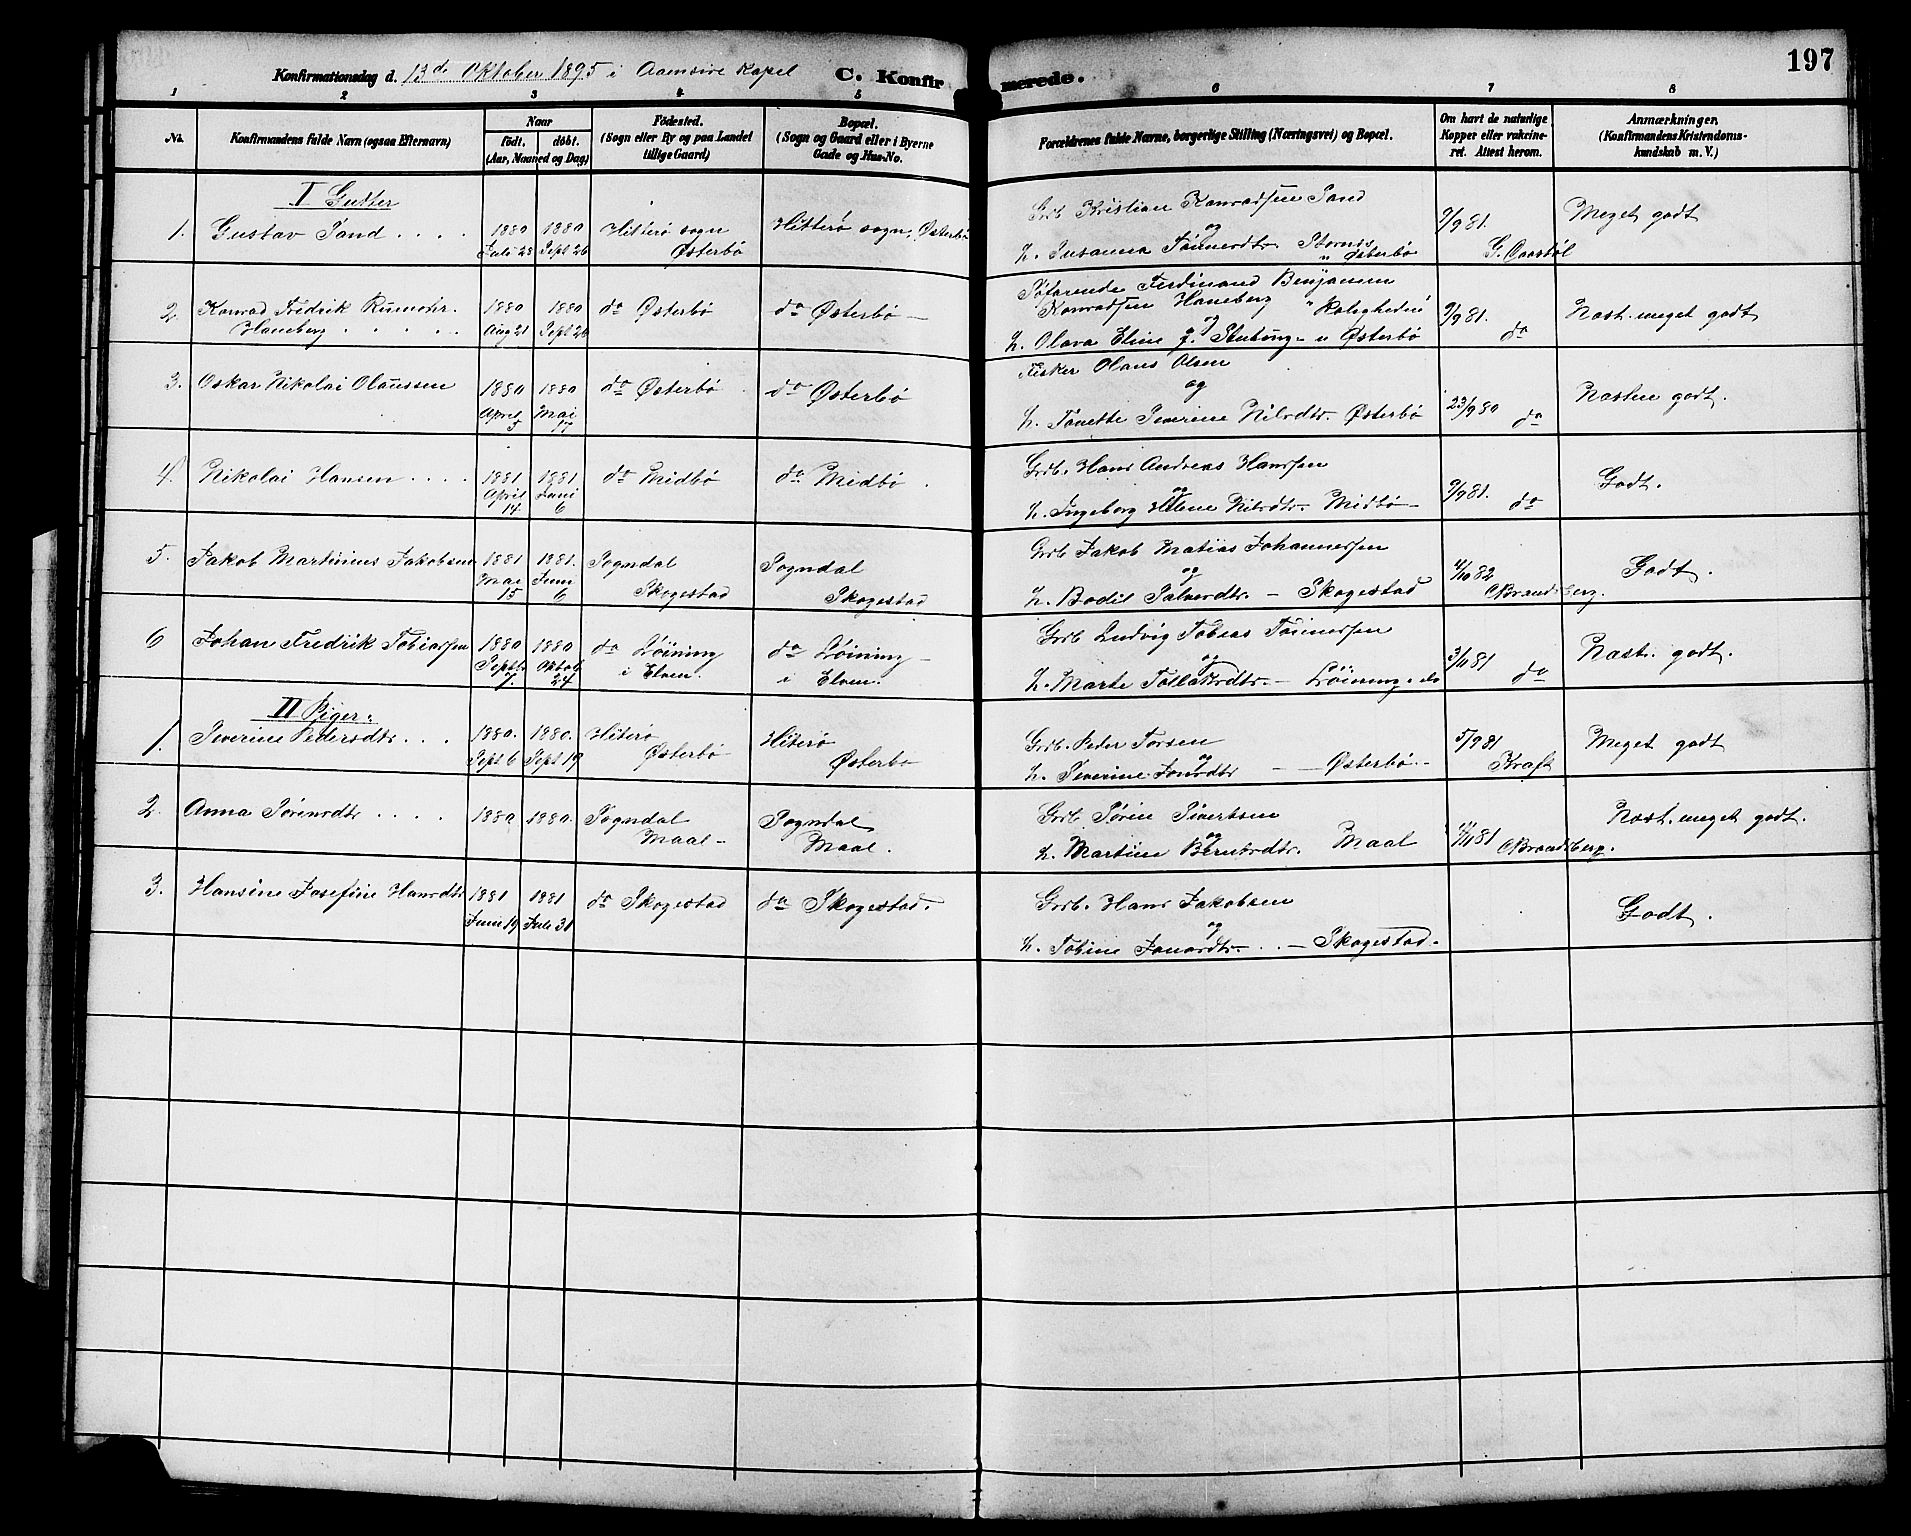 197
Konfirmationsdag d. 13de Oktober 1895 i Aamsire Kapel C. Konfirmerede.
1 2 3 4 5 6 7 8
No. Konfirmandens fulde Navn (ogsaa Efternavn) Naar födt. döbt. (Aar, Maaned og Dag) Födested. (Sogn eller By og paa Landet tillige Gaard) Bopæl. (Sogn og Gaard eller i Byerne Gade og Hus-No. Forældrenes fulde Navne, borgerlige Stilling (Næringsvei) og Bopæl. Om havt de naturlige Kopper eller vakcineret. Attest herom. Anmærkninger. (Konfirmandens Kristendomskundskab m. V.)
I Gutter
1. Gustav Sand . . . . 1880 Juli 28 1880 Sept 26 Hitterö sogn Østerbö Hitterö sogn, Østerbö Grdb Kristian Konradsen Sand og H. Susanna Tönnesdtr. Østerbö 9/9 81. Meget godt
2. Konrad Fredrik Rumohr Haneberg . . . . 1880 Aug 21 1880 Sept 26 do Østerbö do Østerbö Söfarende Ferdinand Benjamin Konradsen Haneberg og H. Olava Eline f. Stubing Østerbö 9/9 81. do Næst. meget godt
3. Oskar Nikolai Olaussen 1880 April 5 1880 Mai 17 do Østerbö do Østerbö Fisker Olaus Olsen og H. Tönette Severine Nilsdtr. Østerbö 23/9 80 do Næsten godt.
4. Nikolai Hansen . . . . 1881. April 14 1881. Juni 6 do Midbö do Midbö Grdb. Hans Andreas Hansen og H. Ingeborg Helene Nilsdtr. Midbö 9/9 81. do Godt.
5. Jakob Martinius Jakobsen 1881 Mai 15 1881. Juni 6 Sogndal Skogestad Sogndal Skogestad Grdb Jakob Matias Johannessen og H. Bodil Salvesdtr. - Skogestad 82 Brandsberg. Godt.
6 Johan Fredrik Tobiassen 1880 Septb 7. 1880 Oktob 24 do Löining i Elven. do Löining i Elven. Grdb Ludvig Tobias Tönnessen og H. Marte Tollaksdtr. - Löining 3/11 81 do Næst. godt.
II Piger.
1. Severine Pedersdtr. . . . 1880. Sept 6 1880. Sept 19 Hiterö Østerbö Hiterö Østerbö Grdb. Peder Torsen og H. Severine Jonsdtr - Østerbö 5/9 81 Kraft Meget godt
2. Anna Sörensdtr . . . . 1880 1880. Sogndal Maal Sogndal Maal. Grdb Sören Sivertsen og H. Martine Berntsdtr. Maal 81 Brandsberg. Næst. meget godt.
3. Hansine Josefine Hansdtr 1881 Juni 19 1881 Juli 31 do Skogestad do Skogestad. Grdb. Hans Jakobsen og H. Tobine Jonasdtr. . . - Skogestad. Godt.